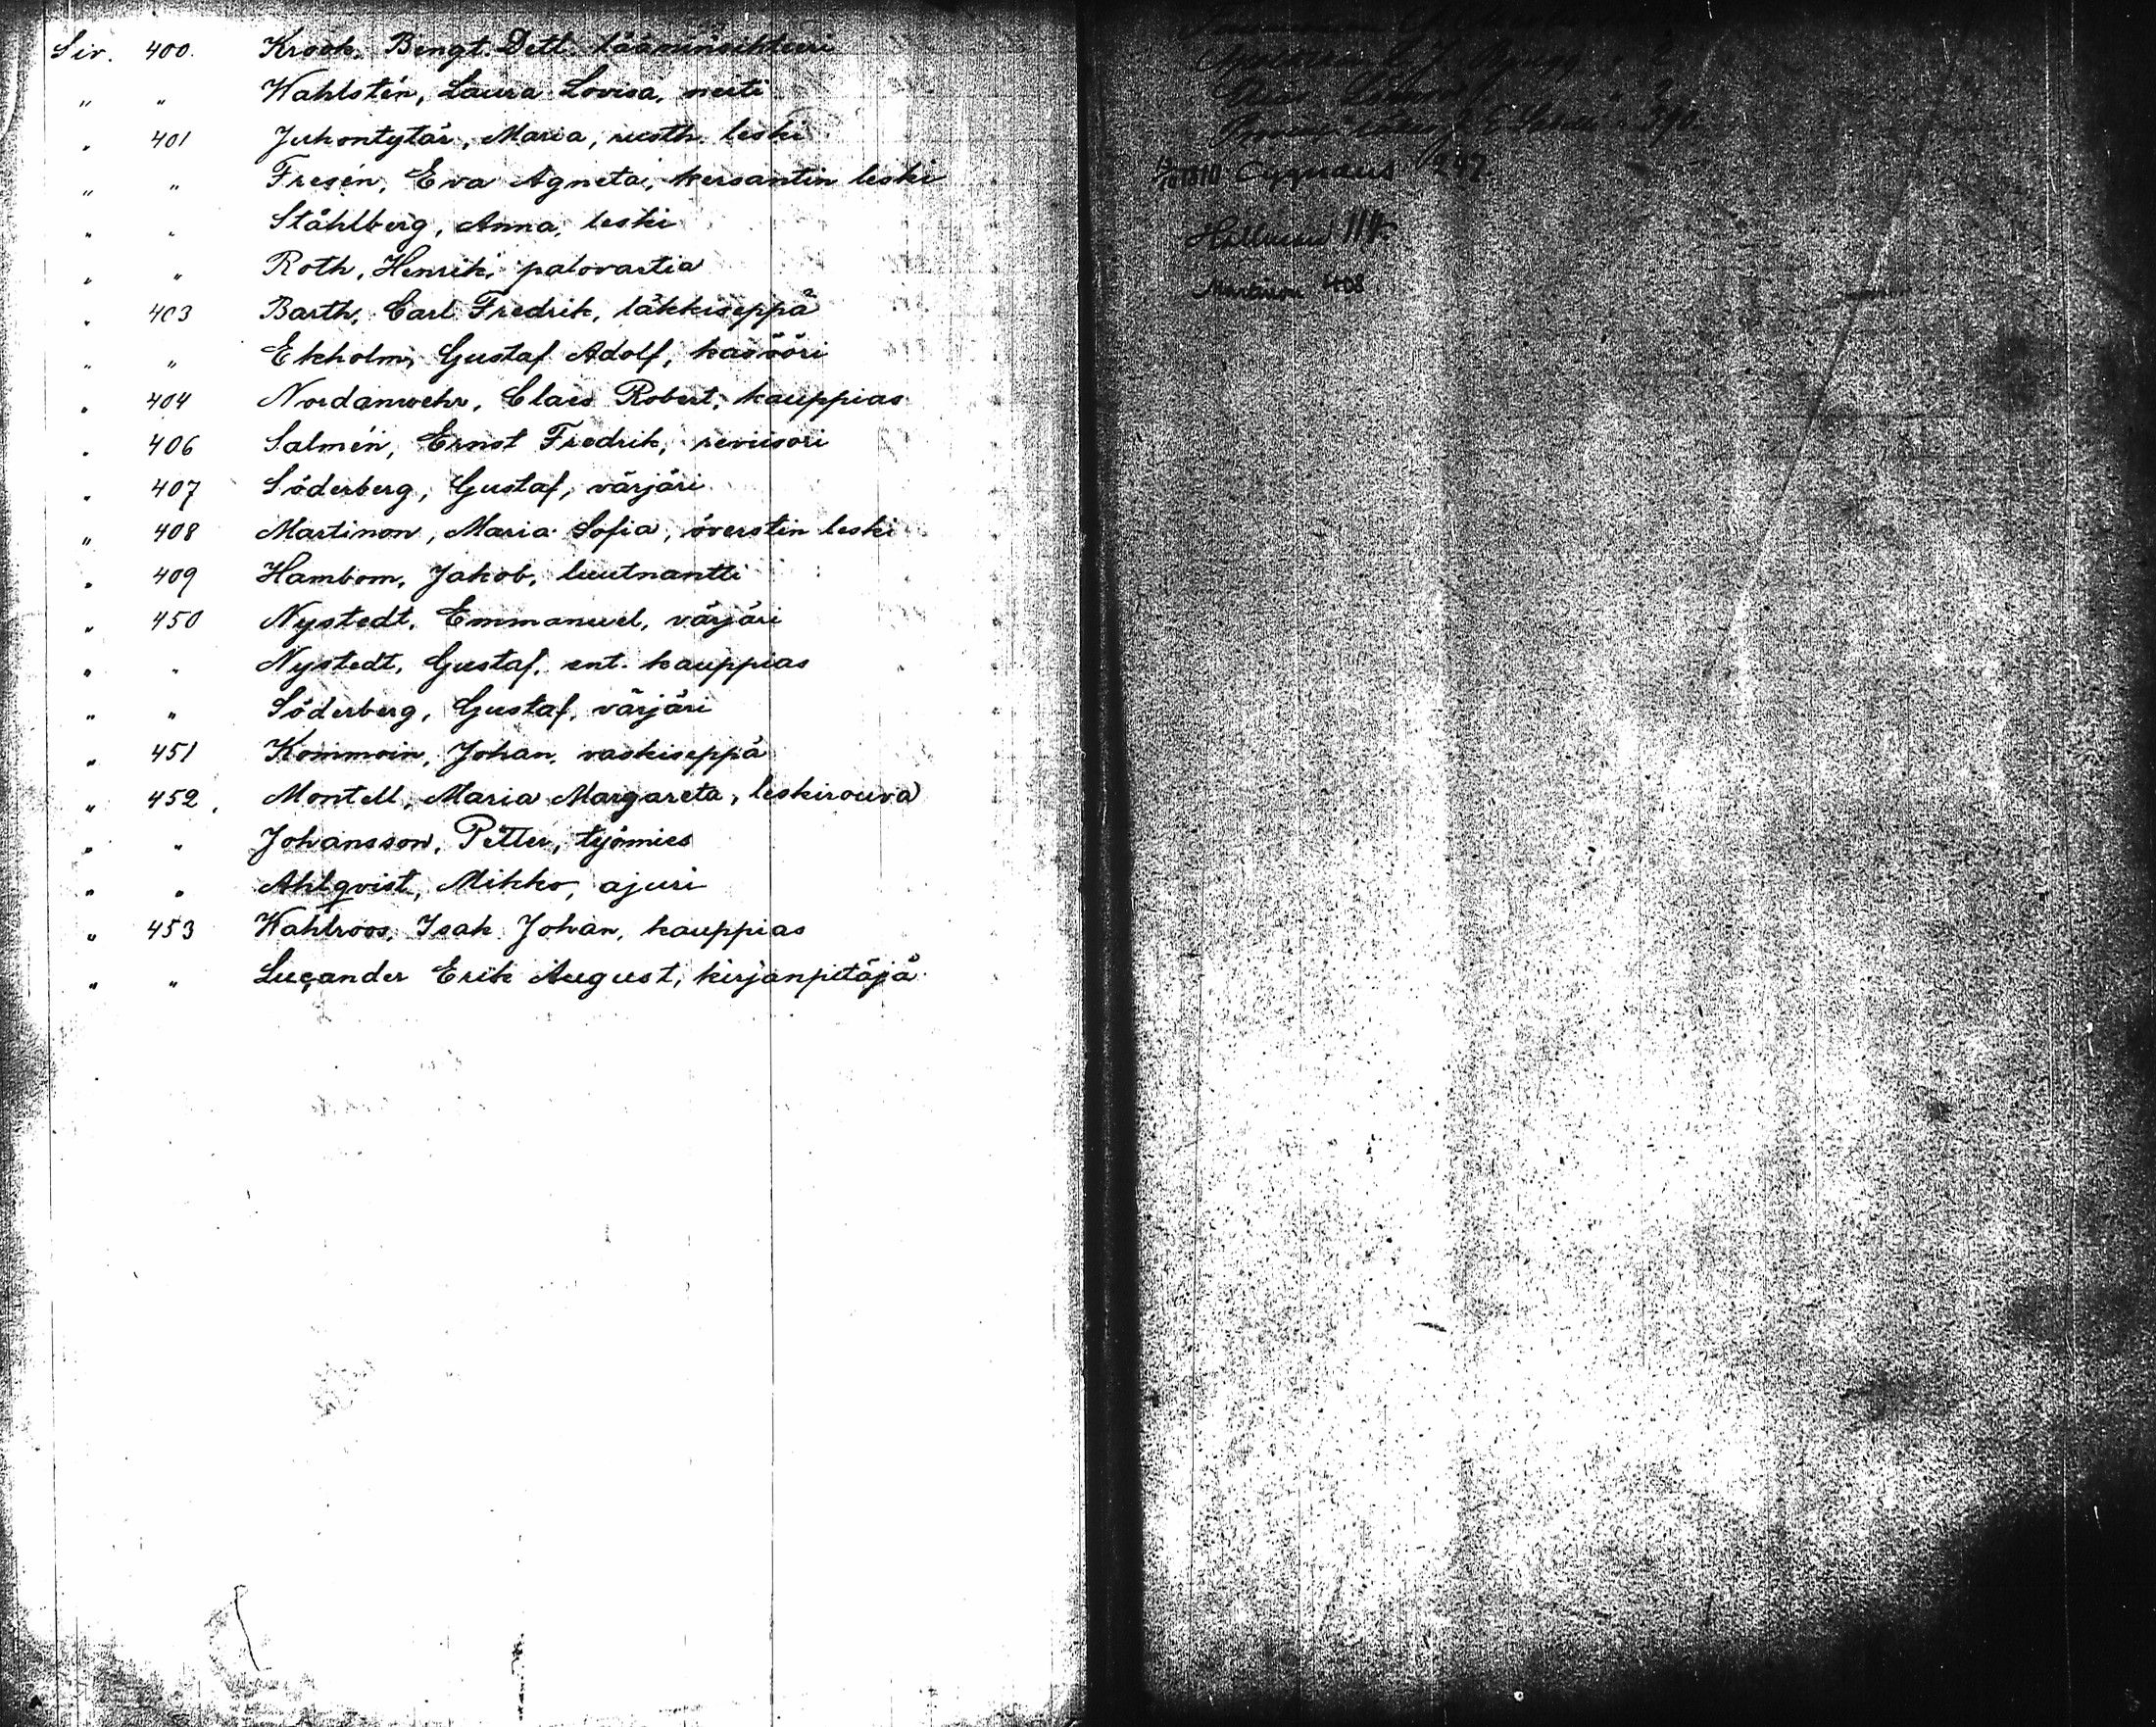 Siv. 400. Krook, Bengt. Detl. lääninsihteeri
" " Wahlstén, Laura Lovisa, neiti
" 401 Juhontytär, Maria, rusth. leski
" " Fresén, Eva Agneta, kersantin leski
" " Ståhlberg, Anna, leski
" " Roth, Henrik, palovartia
" 403 Barth, Carl Fredrik, läkkiseppä
" " Ekholm, Gustaf Adolf, kasööri
" 404 Nordanwehr, Claes Robert, kauppias
" 406 Salmén, Ernst Fredrik, reviisori
" 407 Söderberg, Gustaf, värjäri
" 408 Martinon, Maria Sofia, överstin leski
" 409 Hambom, Jakob, luutnantti
" 450 Nystedt, Emmanuel, värjäri
" " Nystedt, Gustaf, ent. kauppias
" " Söderberg, Gustaf, värjäri
" 451 Kommoin, Johan, vaskiseppä
" 452. Montell, Maria Margareta, leskirouva
" " Johansson, Petter, työmies
" " Ahlqvist, Mikko, ajuri
" 453 Wahlroos, Isak Johan, kauppias
" " Lucander Erik August, kirjanpitäjä
Cygnaeus 247
114
Martinon 408